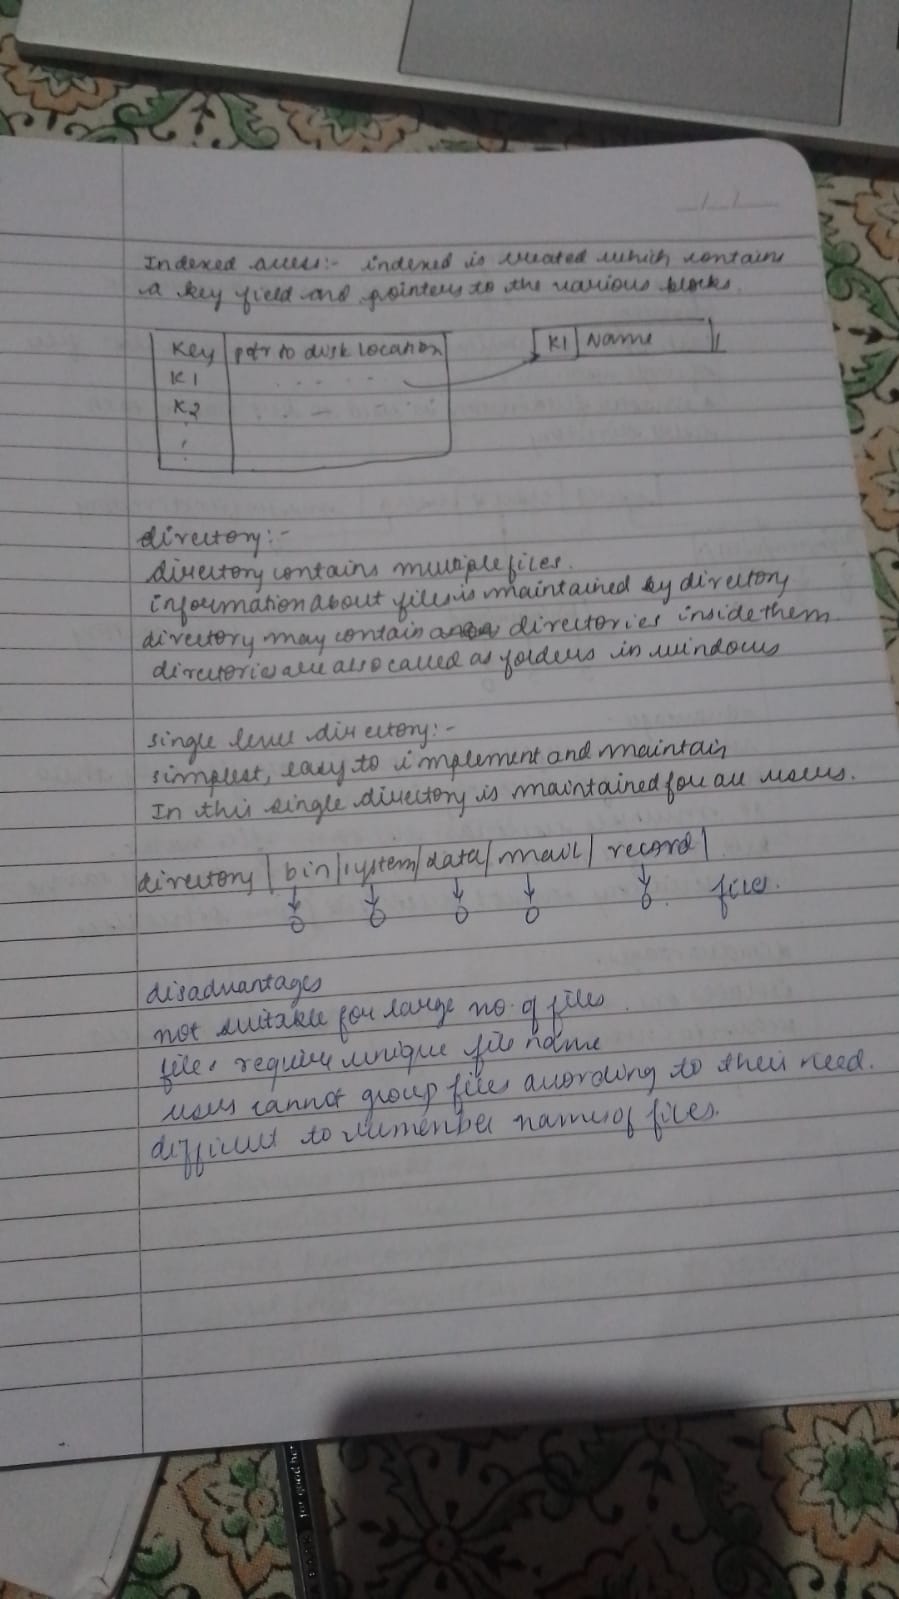 Indexed access:- indexed is created which contains
a key field and pointers to the various blocks.
Key ptr to disk location
K1 Name
K1
K2
directory:-
directory contains multiple files.
information about files is maintained by directory
directory may contain directories inside them.
directories are also called as folders in windows
single level directory:-
simplest, easy to implement and maintain
In this single directory is maintained for all users.
directory | bin | system | data | mail | record |
files.
disadvantages
not suitable for large no. of files.
files require unique file name
users cannot group files according to their need.
difficult to remember names of files.
for good han